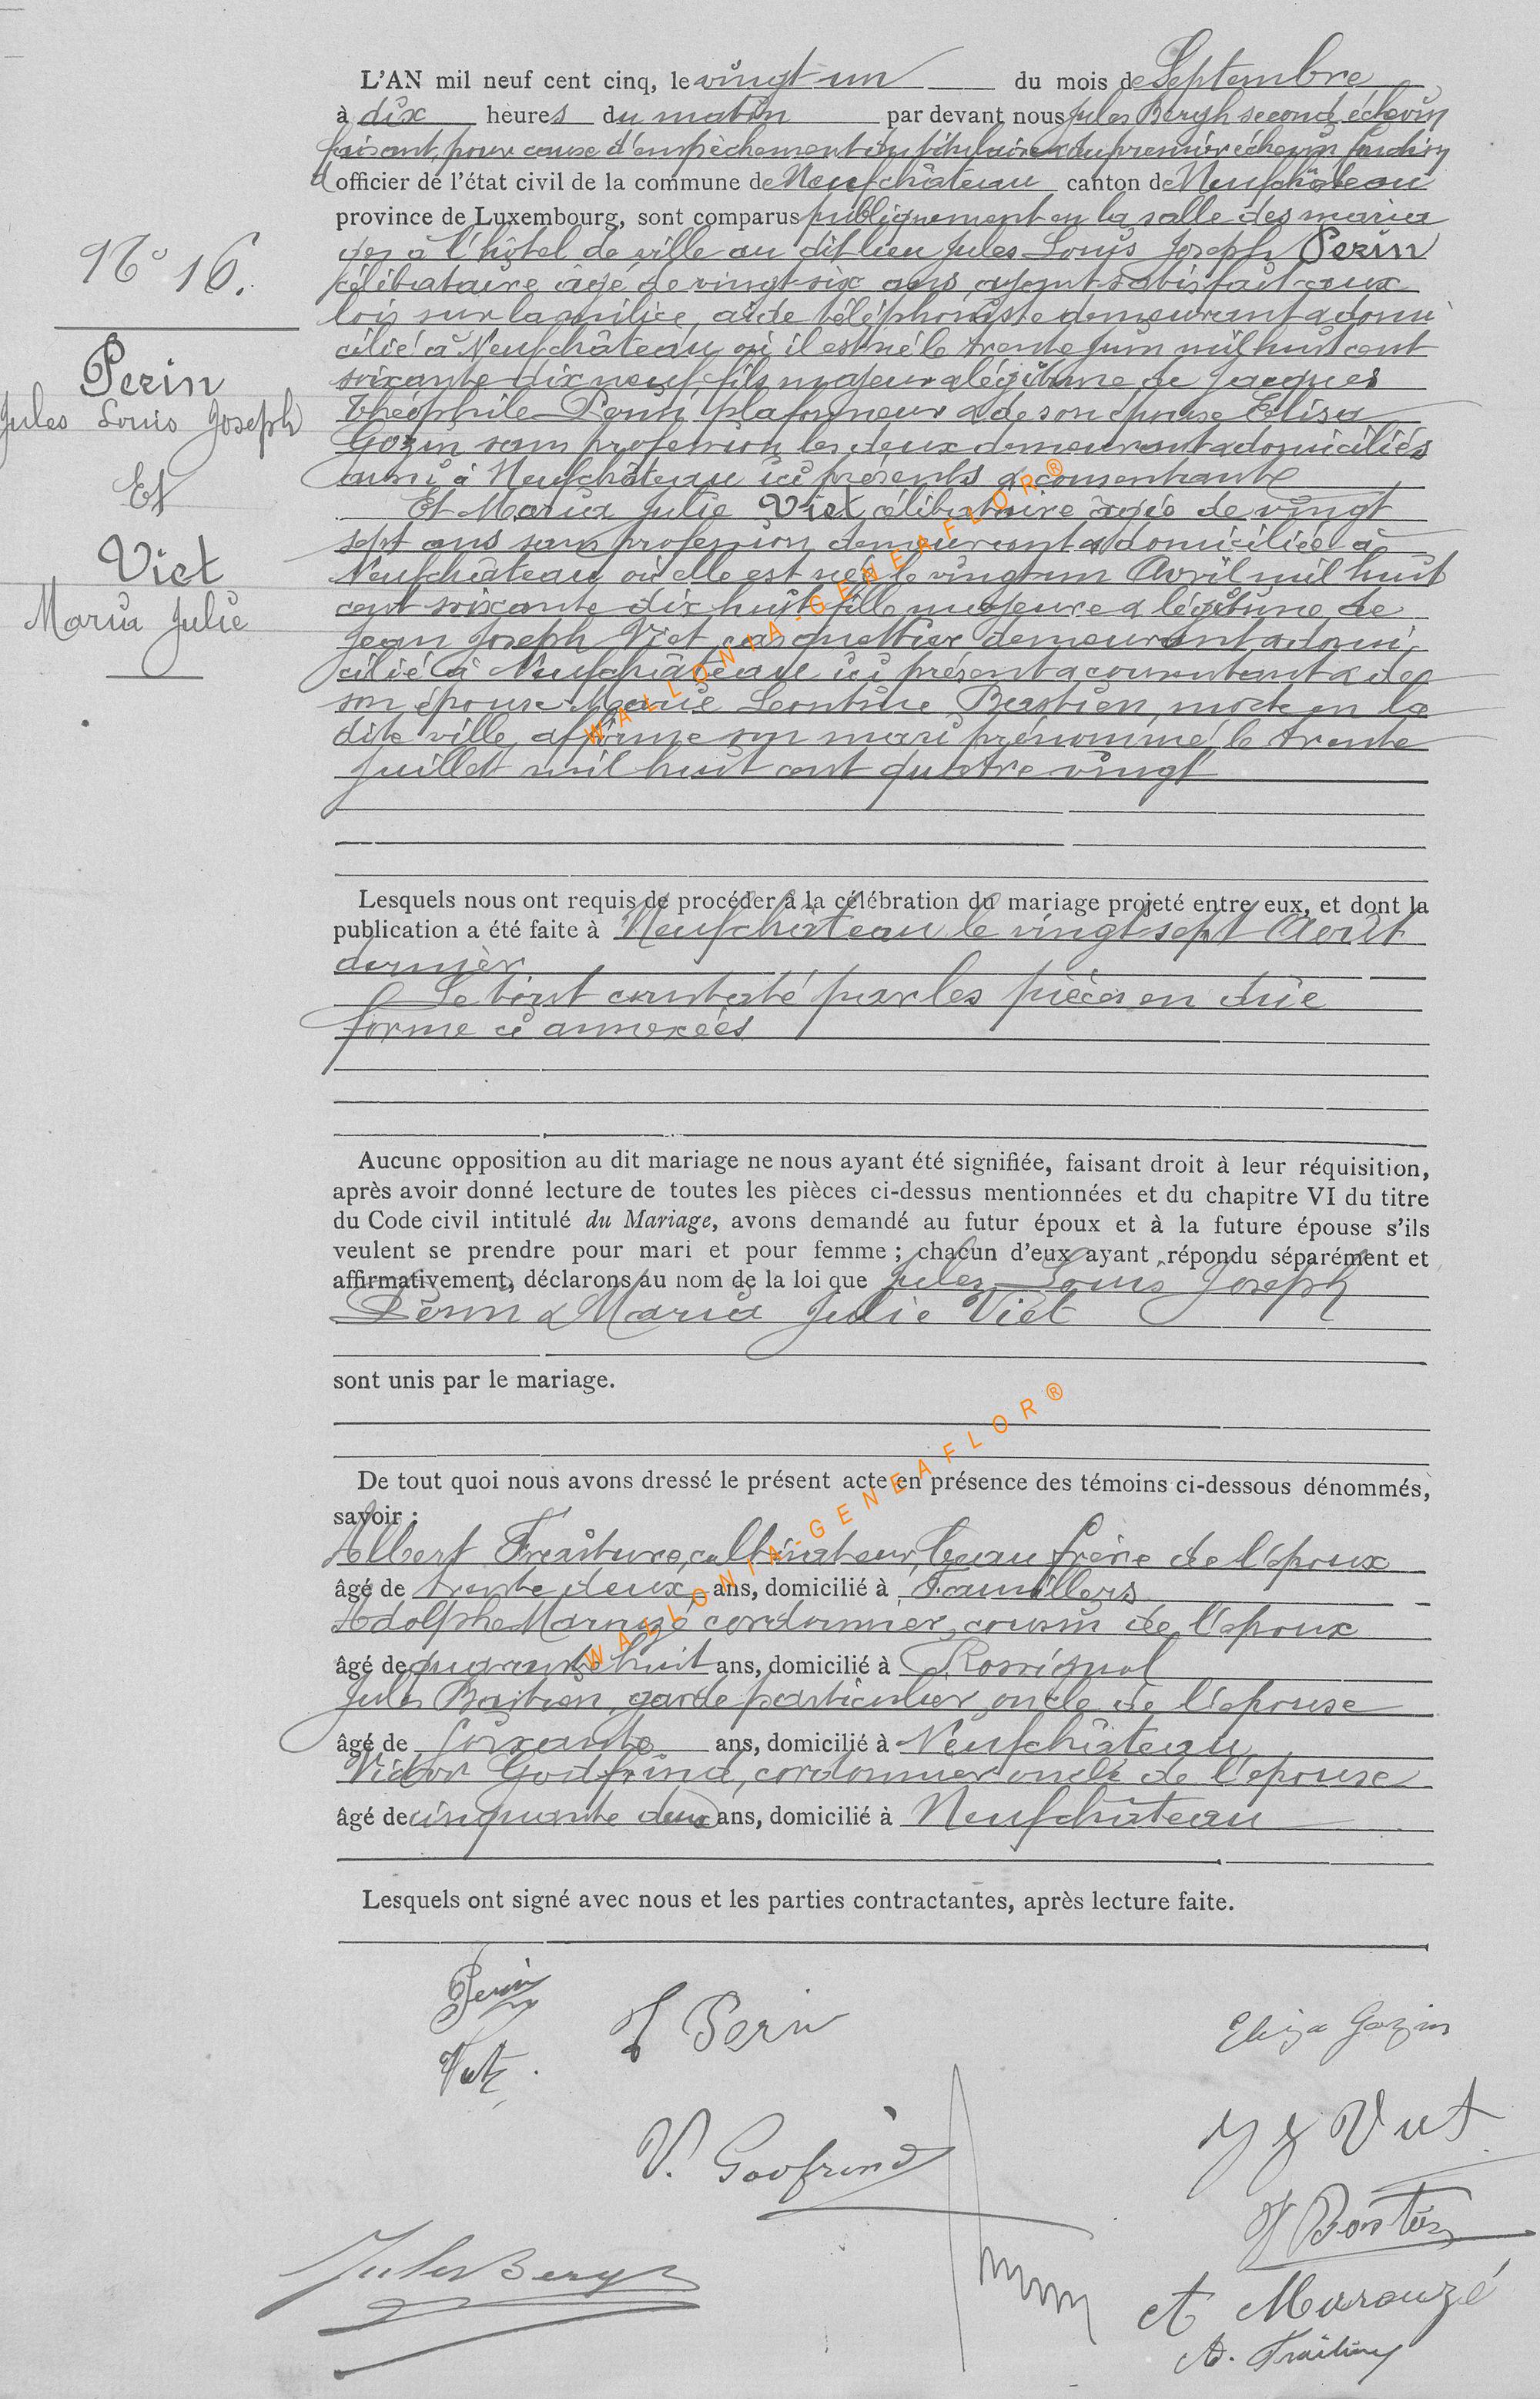 L'AN mil neuf cent cinq, le vingt un du mois de Septembre
à dix heures du matin par devant nous Jules Bergh second échevin
faisant, pour cause d'empêchement du titulaire & du premier échevin fonction
d'officier de l'état civil de la commune de Neufchâteau canton de Neufchâteau
province de Luxembourg, sont comparus publiquement en la salle des maria
ges à l'hôtel de ville au dit lieu Jules Louis Joseph Perin
célibataire âgé de vingt-six ans, ayant satisfait aux
lois sur la milice, aide téléphoniste demeurant & domi
cilié à Neufchâteau où il est né le trente Juin mil huit cent
soixante dix neuf fils majeur & légitime de Jacques
Théophile Perin, plafonneur & de son épouse Elisa
Gozin sans profession les deux demeurant & domiciliés
aussi à Neufchâteau ici présents & consentants
Et Maria Julie Viet célibataire âgée de vingt
sept ans sans profession demeurant & domiciliée à
Neufchâteau où elle est née le vingt un Avril mil huit
cent soixante dix huit fille majeure & légitime de
Jean Joseph Viet casquettier demeurant & domi
cilié à Neufchâteau ici présent & consentant & de
son épouse Marie Léontine Bastien, morte en la
dite ville, affirme son mari prénommé, le trente
Juillet mil huit cent quatre vingt
N° 16.
Perin
Jules Louis Joseph
Et
Viet
Maria Julie
Lesquels nous ont requis de procéder à la célébration du mariage projeté entre eux, et dont la
publication a été faite à Neufchâteau le vingt-sept Août
dernier
Le tout constaté par les pièces en due
forme ci annexées
Aucune opposition au dit mariage ne nous ayant été signifiée, faisant droit à leur réquisition,
après avoir donné lecture de toutes les pièces ci-dessus mentionnées et du chapitre VI du titre
du Code civil intitulé du Mariage, avons demandé au futur époux et à la future épouse s'ils
veulent se prendre pour mari et pour femme ; chacun d'eux ayant répondu séparément et
affirmativement, déclarons au nom de la loi que Jules Louis Joseph
Perin & Maria Julie Viet
sont unis par le mariage.
De tout quoi nous avons dressé le présent acte en présence des témoins ci-dessous dénommés,
savoir :
Albert Fraiture, cultivateur, beau frère de l'époux
âgé de trente deux ans, domicilié à Famillers
Adolphe Marouzé cordonnier, cousin de l'époux
âgé de quarante huit ans, domicilié à Rossignol
Jules Bastien, garde particulier, oncle de l'épouse
âgé de soixante ans, domicilié à Neufchâteau
Victor Godfrind, cordonnier oncle de l'épouse
âgé de cinquante deux ans, domicilié à Neufchâteau
Lesquels ont signé avec nous et les parties contractantes, après lecture faite.
Perin
J Perin
Eliza Gozin
Viet
J J Viet
V. Godfrind
J Bastien
Jules Bergh
A Marouzé
A. Fraiture
WALLONIA-GENEAFLOR®
WALLONIA-GENEAFLOR®